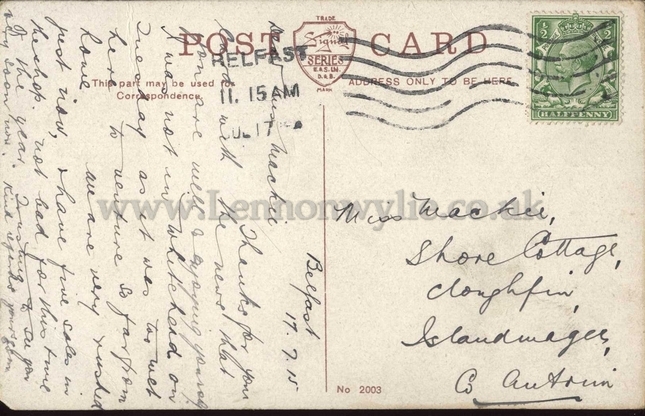 POST CARD
TRADE
Signal
SERIES
E.&S. LTD.
D.&B.
MARK
This part may be used for
Correspondence.
ADDRESS ONLY TO BE HERE
BELFAST
11.15 AM
JL 17
HALFPENNY
Belfast
17.7.15
Dear Miss Mackie
Thanks for your
card with the news that
you are well & enjoying yourself
I was not in Whitehead on
Tuesday as it was too wet
here to venture so far from
home. We are very rushed
just now, & have five sales in
the shop. not bad for this time
of the year. to see you
very soon now. Kind regards
Miss Mackie,
Shore Cottage,
Cloughfin,
Islandmagee,
Co Antrim
No 2003
www.Lennonwylie.co.uk